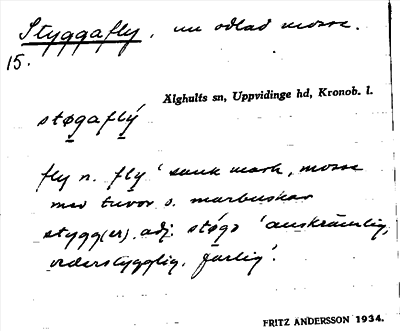 Styggafly, nu odlad mosse.
15.
Älghults sn, Uppvidinge hd, Kronob. l.
støgaflý
fly n. flý 'sank mark, mosse
med tuvor o. marbuskar
stygg(er), adj. støgə 'anskrämlig,
vederstygglig, farlig'.
FRITZ ANDERSSON 1934.